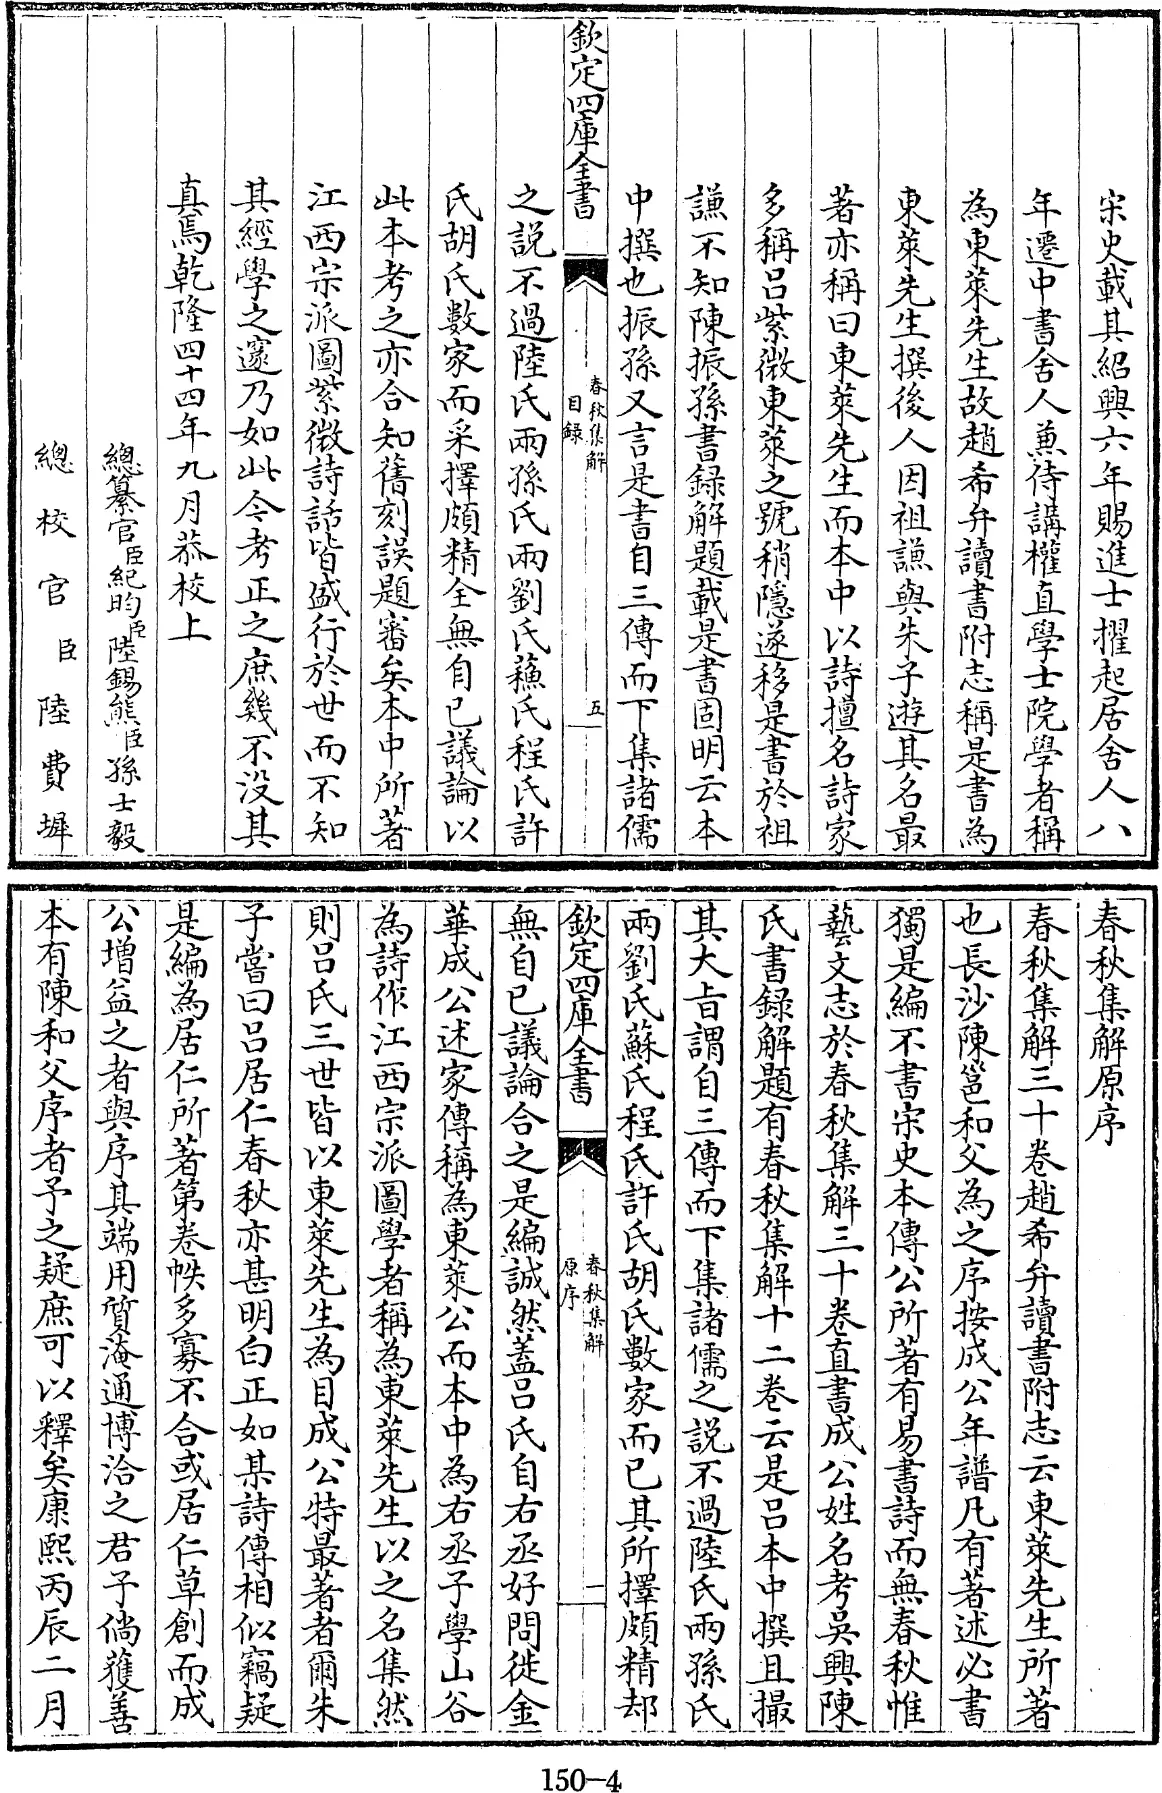 宋史載其紹興六年賜進士擢起居舍人八
年遷中書舍人兼侍講權直學士院學者稱
為東萊先生故趙希弁讀書附志稱是書為
東萊先生撰後人因祖謙與朱子遊其名最
著亦稱曰東萊先生而本中以詩擅名詩家
多稱吕紫微東萊之號稍隱遂移是書於祖
謙不知陳振孫書録解題載是書固明云本
中撰也振孫又言是書自三傳而下集諸儒
欽定四庫全書
春秋集解
目録
五
之說不過陸氏兩孫氏兩劉氏蘓氏程氏許
氏胡氏數家而采擇頗精全無自己議論以
此本考之亦合知舊刻誤題審矣本中所著
江西宗派圖紫微詩話皆盛行於世而不知
其經學之邃乃如此今考正之庶幾不没其
真焉乾隆四十四年九月恭校上
總纂官臣紀昀臣陸錫熊臣孫士毅
總校官臣陸費墀
春秋集解原序
春秋集解三十卷趙希弁讀書附志云東萊先生所著
也長沙陳邕和父為之序按成公年譜凡有著述必書
獨是編不書宋史本傳公所著有易書詩而無春秋惟
藝文志於春秋集解三十卷直書成公姓名考吳興陳
氏書録解題有春秋集解十二卷云是吕本中撰且撮
其大旨謂自三傳而下集諸儒之說不過陸氏兩孫氏
兩劉氏蘇氏程氏許氏胡氏數家而已其所擇頗精却
欽定四庫全書
春秋集解
原序
一
無自己議論合之是編誠然蓋吕氏自右丞好問徙金
華成公述家傳稱為東萊公而本中為右丞子學山谷
為詩作江西宗派圖學者稱為東萊先生以之名集然
則吕氏三世皆以東萊先生為目成公特最著者爾朱
子嘗曰吕居仁春秋亦甚明白正如某詩傳相似竊疑
是編為居仁所著第卷帙多寡不合或居仁草創而成
公增益之者與序其端用質淹通博洽之君子倘獲善
本有陳和父序者予之疑庶可以釋矣康熙丙辰二月
150-4